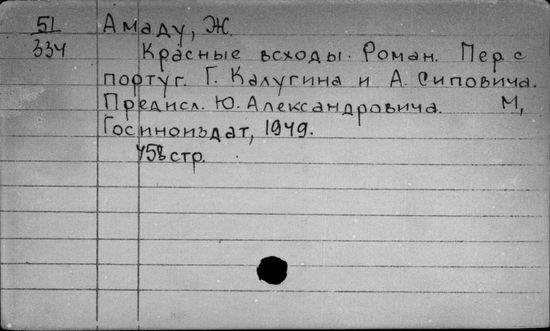 51 Амаду, Ж.
334 Красные всходы. Роман. Пер с
португ. Г. Калугина и А. Сиповича.
Предисл. Ю. Александровича. М,
Госиноиздат, 1949.
458 стр.